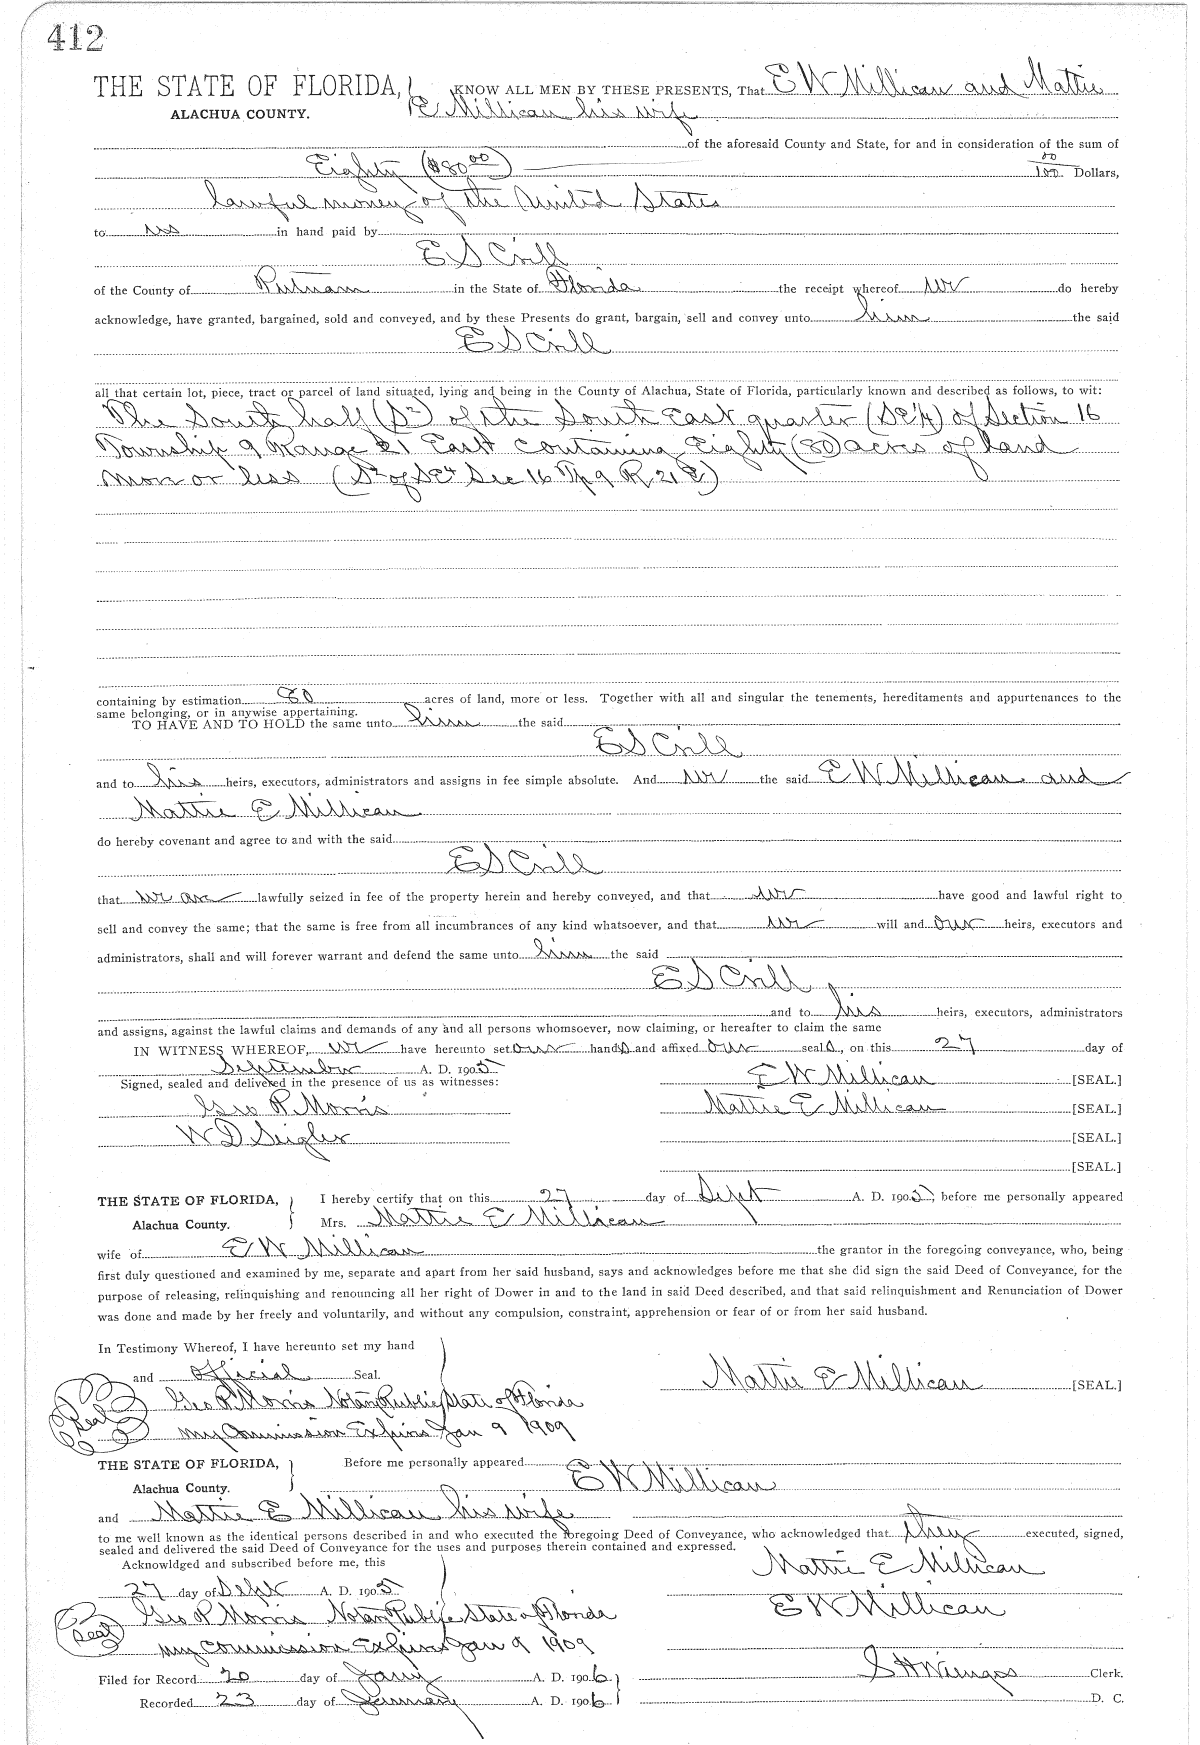 412
THE STATE OF FLORIDA, KNOW ALL MEN BY THESE PRESENTS, That E W Millican and Mattie
ALACHUA COUNTY. E Millican his wife
of the aforesaid County and State, for and in consideration of the sum of
Eighty ($80.00) 00/100 Dollars,
lawful money of the United States
to us in hand paid by
E S Crill
of the County of Putnam in the State of Florida the receipt whereof we do hereby
acknowledge, have granted, bargained, sold and conveyed, and by these Presents do grant, bargain, sell and convey unto him the said
E S Crill
all that certain lot, piece, tract or parcel of land situated, lying and being in the County of Alachua, State of Florida, particularly known and described as follows, to wit:
The South half (S2) of the South East quarter (SE1/4) of Section 16
Township 9 Range 21 East containing Eighty (80) acres of land
more or less (S2 of SE4 Sec 16 Tp 9 R. 21 E)
containing by estimation 80 acres of land, more or less. Together with all and singular the tenements, hereditaments and appurtenances to the
same belonging, or in anywise appertaining.
TO HAVE AND TO HOLD the same unto him the said
E S Crill
and to his heirs, executors, administrators and assigns in fee simple absolute. And we the said E W Millican and
Mattie E Millican
do hereby covenant and agree to and with the said
E S Crill
that we are lawfully seized in fee of the property herein and hereby conveyed, and that we have good and lawful right to
sell and convey the same; that the same is free from all incumbrances of any kind whatsoever, and that we will and our heirs, executors and
administrators, shall and will forever warrant and defend the same unto him the said
E S Crill
and to his heirs, executors, administrators
and assigns, against the lawful claims and demands of any and all persons whomsoever, now claiming, or hereafter to claim the same
IN WITNESS WHEREOF, we have hereunto set our hands and affixed our seals, on this 27 day of
September A. D. 1905
Signed, sealed and delivered in the presence of us as witnesses: E W Millican [SEAL.]
Geo P Morris Mattie E Millican [SEAL.]
W D Seigler [SEAL.]
[SEAL.]
THE STATE OF FLORIDA, I hereby certify that on this 27 day of Sept A. D. 1905, before me personally appeared
Alachua County. Mrs. Mattie E Millican
wife of E W Millican the grantor in the foregoing conveyance, who, being
first duly questioned and examined by me, separate and apart from her said husband, says and acknowledges before me that she did sign the said Deed of Conveyance, for the
purpose of releasing, relinquishing and renouncing all her right of Dower in and to the land in said Deed described, and that said relinquishment and Renunciation of Dower
was done and made by her freely and voluntarily, and without any compulsion, constraint, apprehension or fear of or from her said husband.
In Testimony Whereof, I have hereunto set my hand
and official Seal. Mattie E Millican [SEAL.]
Seal Geo P Morris Notary Public State of Florida
my Commission Expires Jan 9 1909
THE STATE OF FLORIDA, Before me personally appeared E W Millican
Alachua County.
and Mattie E Millican his wife
to me well known as the identical persons described in and who executed the foregoing Deed of Conveyance, who acknowledged that they executed, signed,
sealed and delivered the said Deed of Conveyance for the uses and purposes therein contained and expressed.
Acknowldged and subscribed before me, this Mattie E Millican
27 day of Sept A. D. 1905 E W Millican
Seal Geo P Morris Notary Public State of Florida
my commission Expires Jan 9 1909
Filed for Record 20 day of Jany A. D. 1906 S H Wienges Clerk.
Recorded 23 day of January A. D. 1906 D. C.